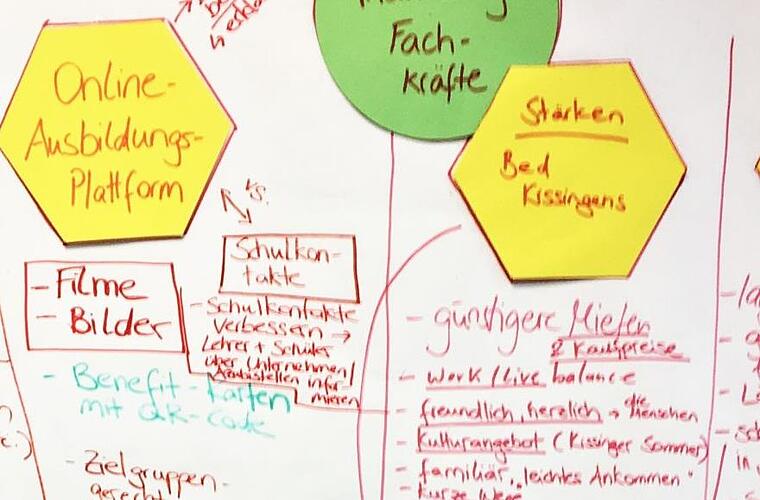 Fach-
kräfte
Online-
Ausbildungs-
Plattform
Stärken
Bed
Kissingens
vs.
Schulkon-
takte
- Filme
- Bilder
- Schulkontakte
verbessern →
Lehrer + Schüler
über Unternehmen/
infor-
mieren
- Benefit-Karten
mit QR-Code
- Zielgruppen-
gerecht
- günstigere Mieten
& Kaufpreise
- work/live balance
- freundlich, herzlich → die Menschen
- Kulturangebot (Kissinger Sommer)
- familiär, "leichtes Ankommen"
- kurze Wege